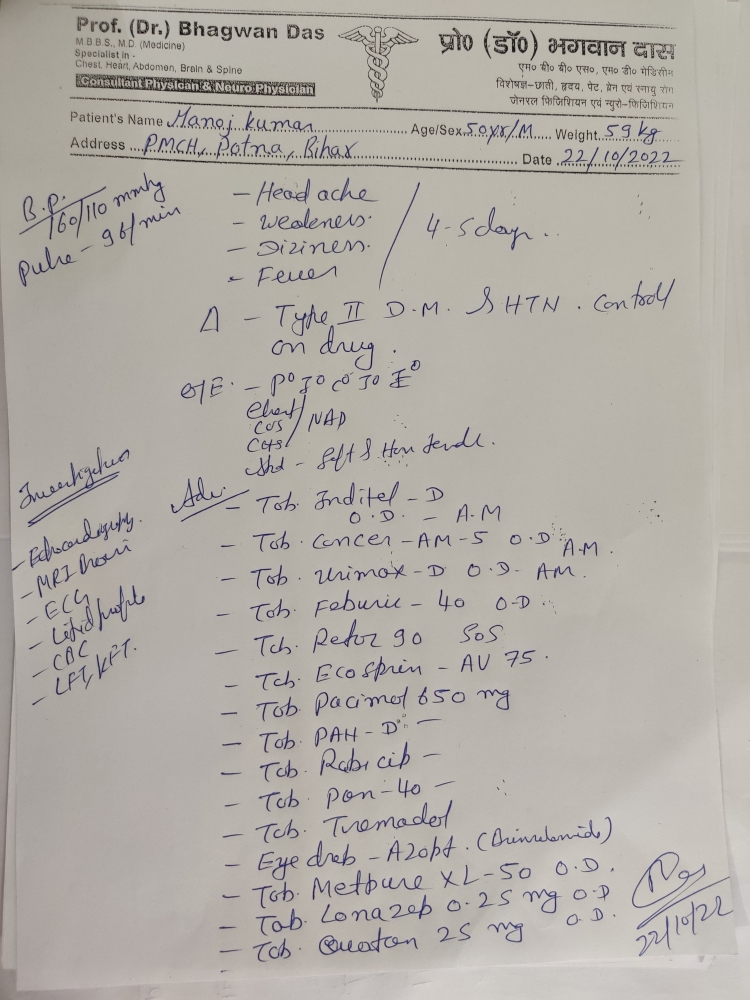 Prof. (Dr.) Bhagwan Das
M.B.B.S., M.D. (Medicine)
Specialist in -
Chest, Heart, Abdomen, Brain & Spine
Consultant Physican & Neuro Physician
प्रो० (डॉ०) भगवान दास
एम० बी० बी० एस०, एम० डी० मेडिसीन
विशेषज्ञ-छाती, हृदय, पेट, ब्रेन एवं स्नायु रोग
जेनरल फिजिशियन एवं न्युरो-फिजिशियन
Patient's Name Manoj kumar Age/Sex 50yr/M Weight 59 kg
Address PMCH, Patna, Bihar Date 22/10/2022
B.P. 160/110 mmhg
Pulse - 96/min
- Head ache
- Weakness
- Diziness
- Fever
4-5 days
Δ - Type II D.M. & HTN. Controll
on drug.
O/E. -
Chest
CVS / NAD
CNS
Abd - Soft & Non tende
Investigation
- Echocardiography.
- MRI Brain
- ECG
- Lipid profile
- CBC
- LFT, KFT.
Adv.
- Tab. Inditel - D
O.D. - A.M
- Tab. Concer - AM - 5 O.D A.M.
- Tab. Urimax - D O.D. AM.
- Tab. Feburic - 40 O-D
- Tab. Retoz 90 SOS
- Tab. Ecosprin - AV 75.
- Tab. Pacimol 650 mg
- Tab. PAH - D -
- Tab. Rabicip -
- Tab. Pan - 40 -
- Tab. Tramadol
- Eye drob - Azopt. (Brinzolamide)
- Tab. Metpure XL - 50 O.D.
- Tab. Lonazep 0.25 mg O.D
- Tab. 25 mg O.D.
Das
22/10/22